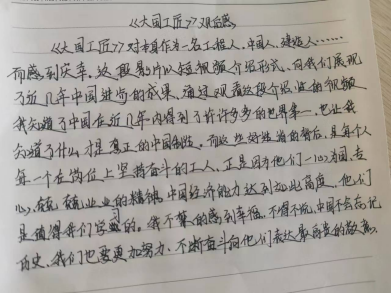 《大国工匠》观后感
《大国工匠》对本身作为一名工程人、中国人、建筑人……
而感到庆幸。这段影片以短视频介绍形式，向我们展现
了近几年中国进步的成果，通过观看这段介绍性的视频
我知道了中国在近几年内得到了许许多多的世界第一，也让我
知道了什么才是真正的中国制造。而这些好的背后，是每个人
每一个在岗位上坚持奋斗的工人，正是因为他们一心为国，专
心，兢兢业业的精神，中国经济能力达到如此高度，他们
是值得我们学习的。我不禁的感到幸福，不得不说，中国不会忘记
历史，我们也要更加努力，不断奋斗向他们表达最高贵的敬意。